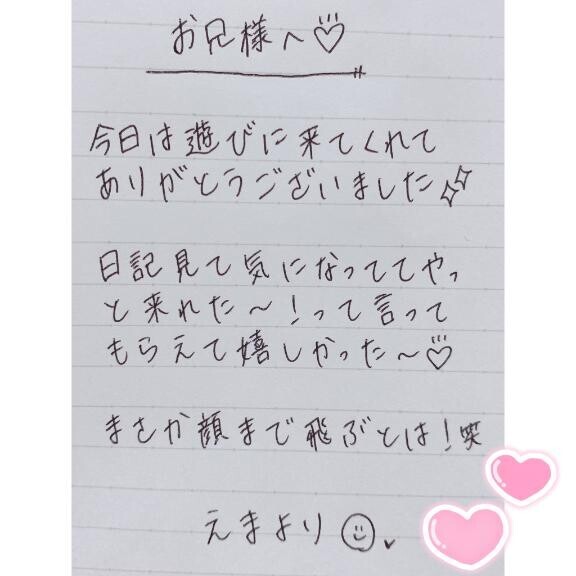 お兄様へ♡
今日は遊びに来てくれて
ありがとうございました✨
日記見て気になっててやっ
と来れた〜！って言って
もらえて嬉しかった〜♡
まさか顔まで飛ぶとは！笑
えまより